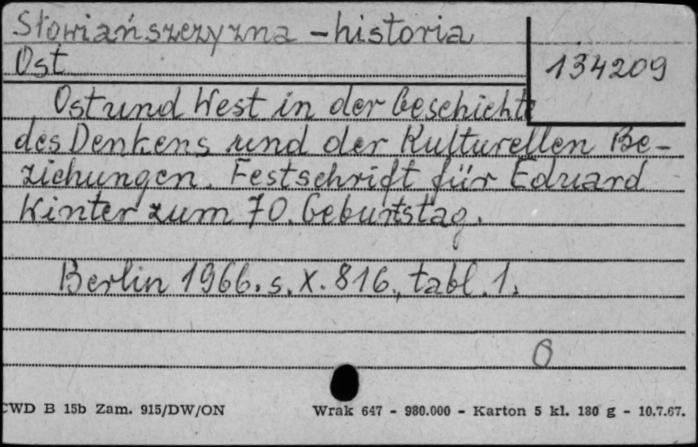 Słowiańszczyzna - historia
Ost
134209
Ost und West in der Geschichte
des Denkens und der Kulturellen Be-
ziehungen. Festschrift für Eduard
Winter zum 70. Geburtstag.
Berlin 1966. s. X. 816, tabl. 1.
0
CWD B 15b Zam. 915/DW/ON
Wrak 647 - 980.000 - Karton 5 kl. 180 g - 10.7.67.